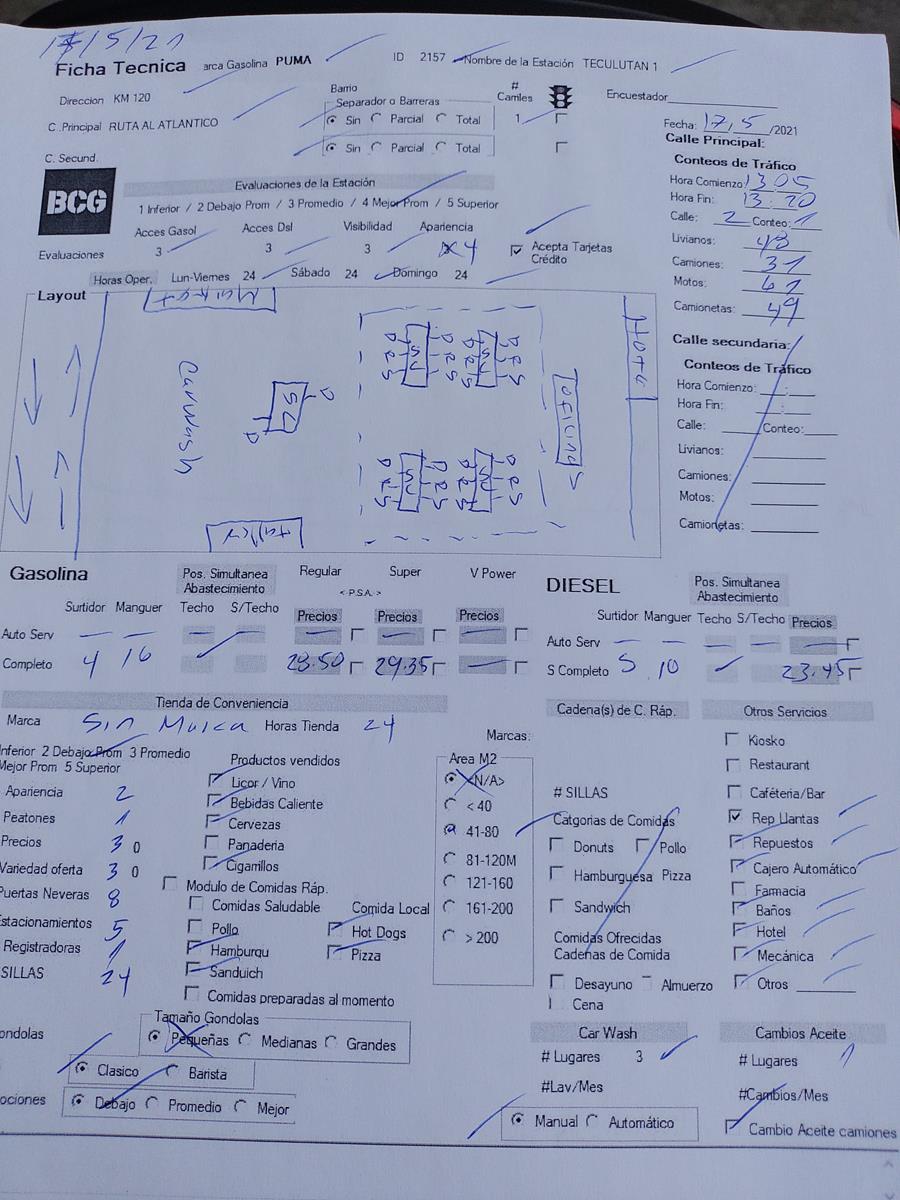 17/5/21
Ficha Tecnica arca Gasolina PUMA ID 2157 Nombre de la Estación TECULUTAN 1
Direccion KM 120
Barrio
Separador o Barreras
# Carriles
Encuestador
C .Principal RUTA AL ATLANTICO
Sin Parcial Total 1
Sin Parcial Total
C. Secund.
Fecha: 17, 5 /2021
Calle Principal:
Conteos de Tráfico
Hora Comienzo 13 05
Hora Fin: 13:20
Calle: 2 Conteo: 1
Livianos: 48
Camiones: 31
Motos: 61
Camionetas: 49
Calle secundaria:
Conteos de Tráfico
Hora Comienzo: :
Hora Fin: :
Calle: Conteo:
Livianos:
Camiones:
Motos:
Camionetas:
BCG
Evaluaciones de la Estación
1 Inferior / 2 Debajo Prom / 3 Promedio / 4 Mejor Prom / 5 Superior
Acces Gasol Acces Dsl Visibilidad Apariencia
Evaluaciones 3 3 3 4
Acepta Tarjetas
Crédito
Horas Oper. Lun-Viernes 24 Sábado 24 Domingo 24
Layout
Carwash
Oficinas
Hotel
SU SU
SU SU
D R S
Gasolina
Pos. Simultanea
Abastecimiento
Regular Super V Power
<-P.S.A.->
Surtidor Manguer Techo S/Techo Precios Precios Precios
Auto Serv — — — — — — —
Completo 4 16 28.50 29.35 —
DIESEL
Pos. Simultanea
Abastecimiento
Surtidor Manguer Techo S/Techo Precios
Auto Serv — — — — —
S Completo 5 10 23.45
Tienda de Conveniencia
Marca Sin Marca Horas Tienda 24
nferior 2 Debajo Prom 3 Promedio
Mejor Prom 5 Superior
Apariencia 2
Peatones 1
Precios 3 0
Variedad oferta 3 0
Puertas Neveras 8
Estacionamientos 5
Registradoras 1
SILLAS 24
Productos vendidos
Licor / Vino
Bebidas Caliente
Cervezas
Panaderia
Cigarrillos
Modulo de Comidas Ráp.
Comidas Saludable Comida Local
Pollo Hot Dogs
Hamburgu Pizza
Sanduich
Comidas preparadas al momento
Marcas:
Area M2
<N/A>
< 40
41-80
81-120M
121-160
161-200
> 200
Cadena(s) de C. Ráp.
# SILLAS
Catgorias de Comidas
Donuts Pollo
Hamburguesa Pizza
Sandwich
Comidas Ofrecidas
Cadenas de Comida
Desayuno Almuerzo
Cena
Otros Servicios
Kiosko
Restaurant
Caféteria/Bar
Rep Llantas
Repuestos
Cajero Automático
Farmacia
Baños
Hotel
Mecánica
Otros
Tamaño Gondolas
ondolas Pequeñas Medianas Grandes
Clasico Barista
ociones Debajo Promedio Mejor
Car Wash
# Lugares 3
#Lav/Mes
Manual Automático
Cambios Aceite
# Lugares 1
#Cambios/Mes
Cambio Aceite camiones